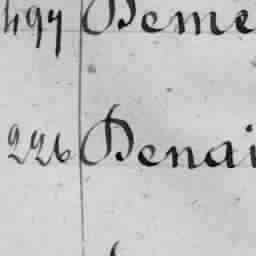 497 Deme
226 Denai